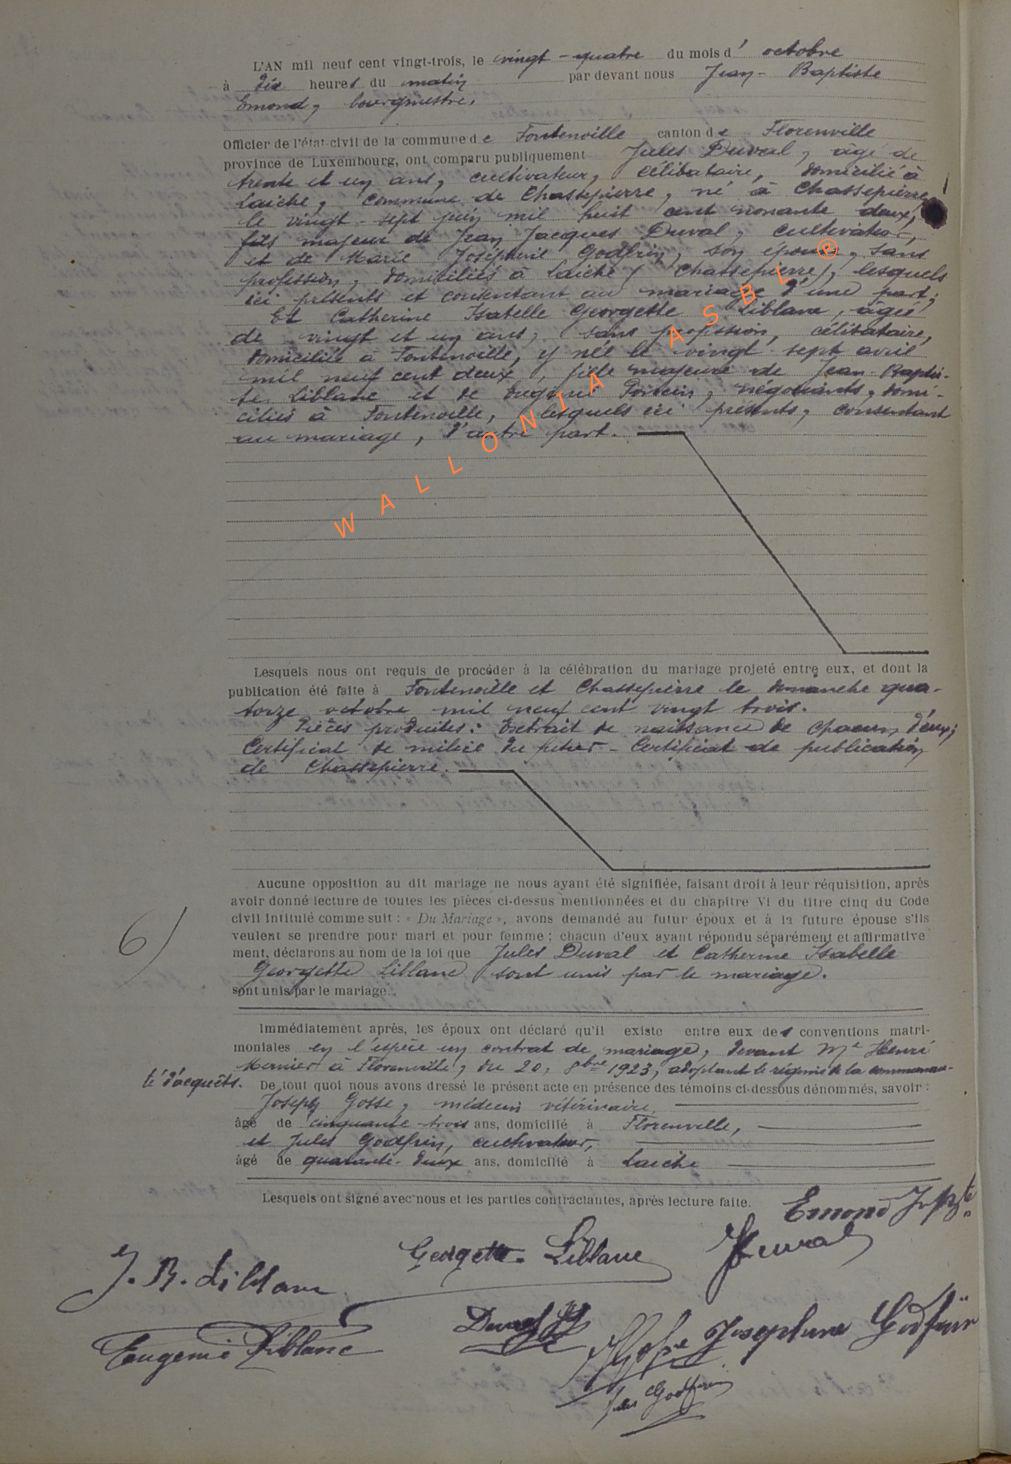 L'AN mil neuf cent vingt-trois, le vingt-quatre du mois d' octobre
à dix heures du matin par devant nous Jean-Baptiste
Emond, bourgmestre,
Officier de l'état-civil de la commune de Fontenoille, canton de Florenville
province de Luxembourg, ont comparu publiquement Jules Duval, âgé de
trente et un ans, cultivateur, célibataire, domicilié à
Laiche, commune de Chassepierre, né à Chassepierre
le vingt-sept juin mil huit cent nonante deux,
fils majeur de Jean Jacques Duval, cultivateur,
et de Marie Joséphine Godfrin, son épouse, sans
profession, domiciliés à Laiche (Chassepierre), lesquels
ici présents et consentant au mariage d'une part;
Et Catherine Isabelle Georgette Liblanc, âgée
de vingt et un ans, sans profession, célibataire,
domiciliée à Fontenoille, y née le vingt sept avril
mil neuf cent deux, fille majeure de Jean-Baptis-
te Liblanc et de Eugénie, négociants, domi-
ciliés à Fontenoille, lesquels ici présents, consentant
au mariage, d'autre part.
WALLONIA ASBL ®
Lesquels nous ont requis de procéder à la célébration du mariage projeté entre eux, et dont la
publication été faite à Fontenoille et Chassepierre le dimanche qua-
torze octobre mil neuf cent vingt trois.
Pièces produites: Extrait de naissance de chacun d'eux;
Certificat de milice du futur - Certificat de publication
de Chassepierre.
Aucune opposition au dit mariage ne nous ayant été signifiée, faisant droit à leur réquisition, après
avoir donné lecture de toutes les pièces ci-dessus mentionnées et du chapitre VI du titre cinq du Code
civil intitulé comme suit : « Du Mariage », avons demandé au futur époux et à la future épouse s'ils
6)
veulent se prendre pour mari et pour femme ; chacun d'eux ayant répondu séparément et affirmative
ment, déclarons au nom de la loi que Jules Duval et Catherine Isabelle
Georgette Liblanc sont unis par le mariage.
sont unis par le mariage.
Immédiatement après, les époux ont déclaré qu'il existe entre eux des conventions matri-
moniales en l'espèce un contrat de mariage, devant Me Henri
à Florenville, du 20, 8bre 1923, adoptant le régime de la communau-
té d'acquêts. De tout quoi nous avons dressé le présent acte en présence des témoins ci-dessous dénommés, savoir :
Joseph Gosse, médecin vétérinaire,
âgé de cinquante-trois ans, domicilié à Florenville,
et Jules Godfrin, cultivateur,
âgé de quarante-deux ans, domicilié à Laiche
Lesquels ont signé avec nous et les parties contractantes, après lecture faite.
Emond J. Bte
Georgette Liblanc JDuval
J. B. Liblanc
Duval JJ Josephine Godfrin
Eugenie Liblanc
Jules Godfrin